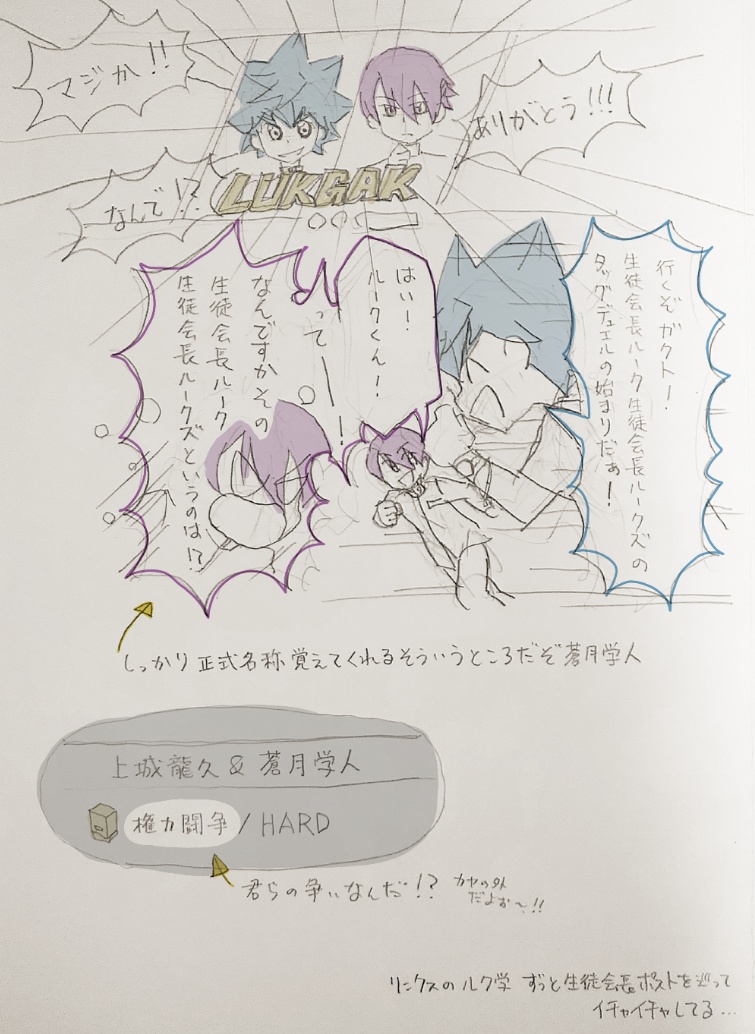 マジか!!
ありがとう!!!
なんで!?
LUKGAK
行くぞガクト!
生徒会長ルーク生徒会長ルークズの
タッグデュエルの始まりだぁ!
はい!
ルークくん!
って——!
なんですかその
生徒会長ルーク
生徒会長ルークズというのは!?
しっかり正式名称覚えてくれるそういうところだぞ蒼月学人
上城龍久&蒼月学人
権力闘争/HARD
君らの争いなんだ!?
カヤの外
だよぉ〜!!
リンクスのルク学 ずっと生徒会長ポストを巡って
イチャイチャしてる…